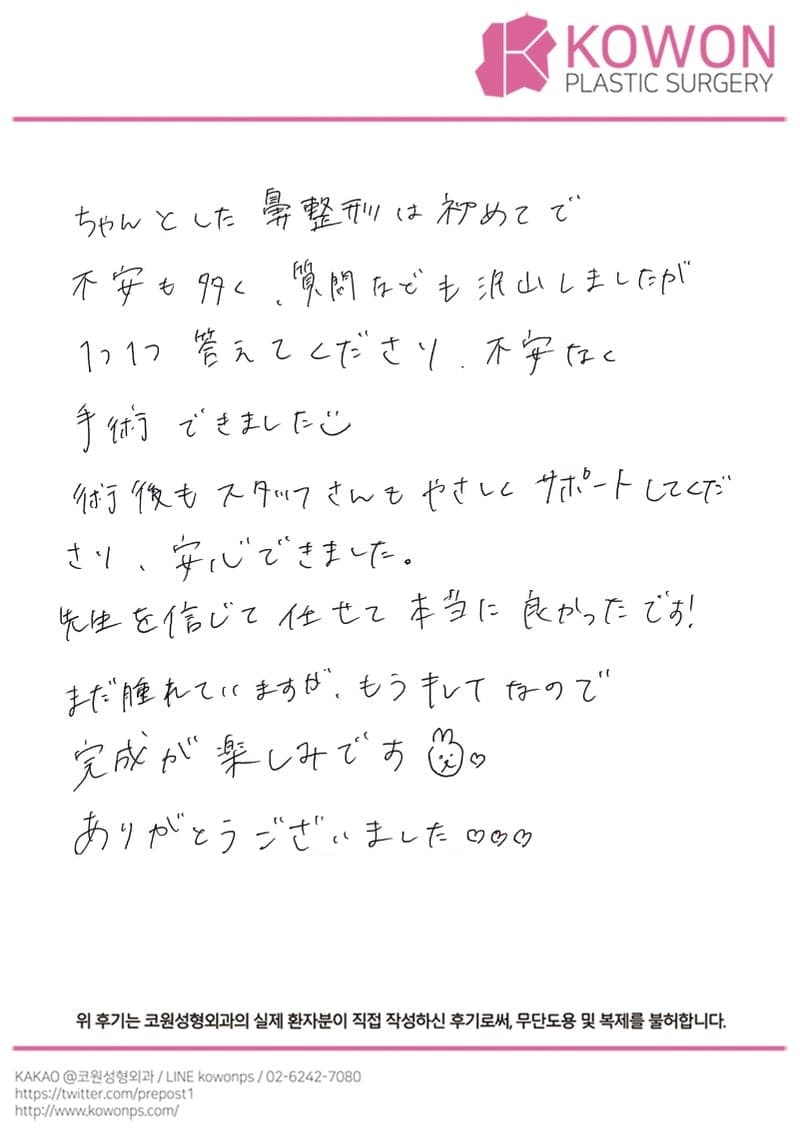 KOWON
PLASTIC SURGERY
ちゃんとした 鼻整形は 初めてで
不安も多く、質問なども沢山しましたが
1つ1つ 答えてくださり、不安なく
手術 できました
術後もスタッフさんも やさしく サポートしてくだ
さり、安心できました。
先生を信じて 任せて 本当に 良かったです!
まだ腫れていますが、もう キレイ なので
完成が 楽しみです ♡
ありがとうございました ♡♡♡
위 후기는 코원성형외과의 실제 환자분이 직접 작성하신 후기로써, 무단도용 및 복제를 불허합니다.
KAKAO @코원성형외과 / LINE kowonps / 02-6242-7080
https://twitter.com/prepost1
http://www.kowonps.com/